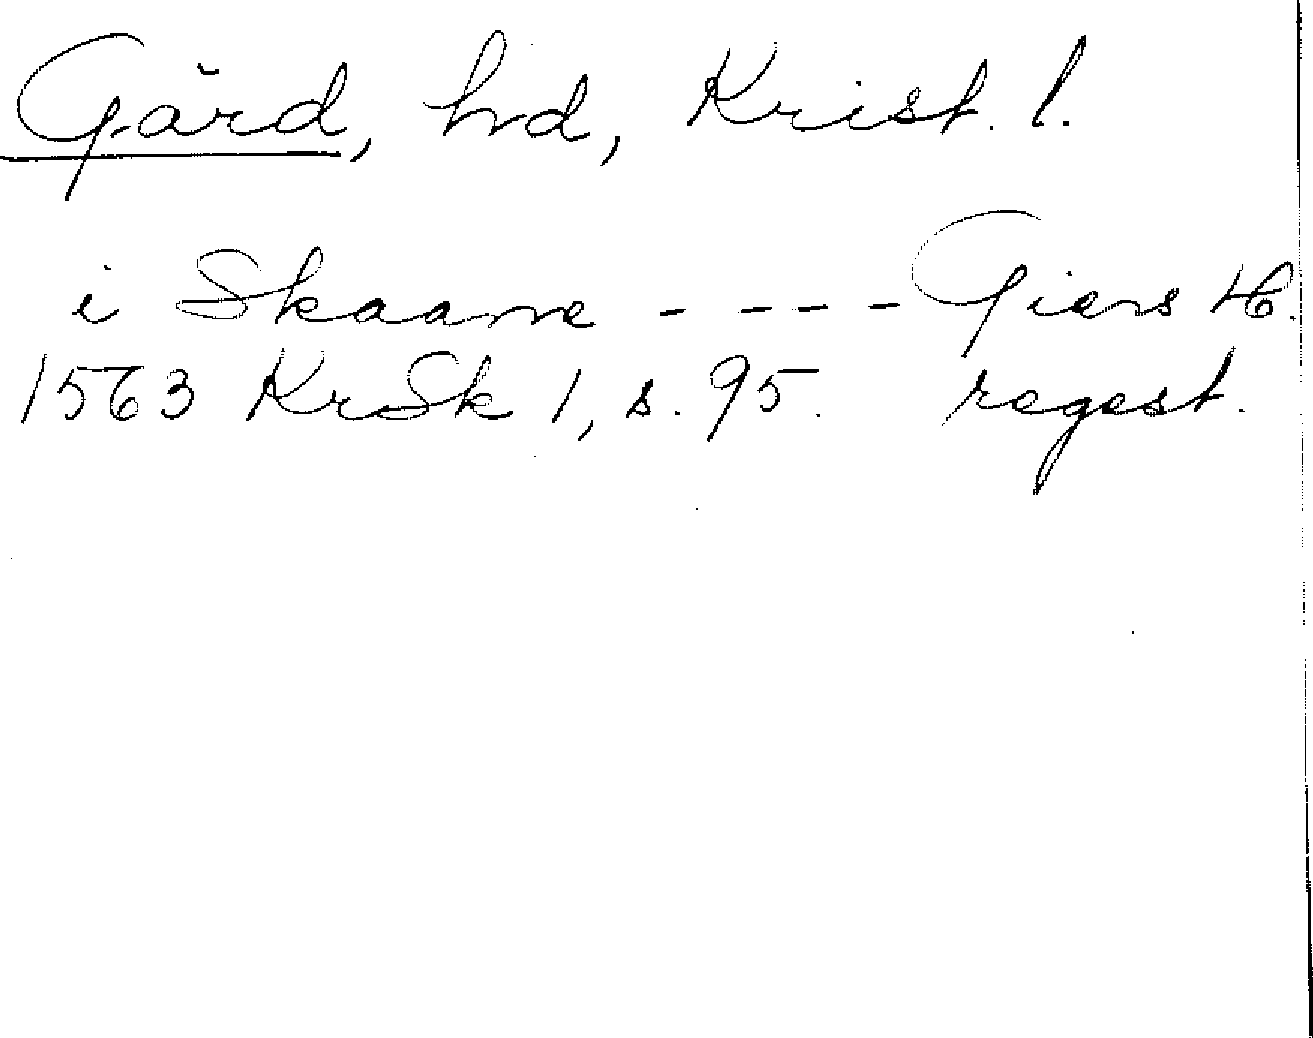 Gärd, hrd, Krist. l.
i Skaane - - - - - Giers H.
1563 KrSk 1, s. 95. regest.